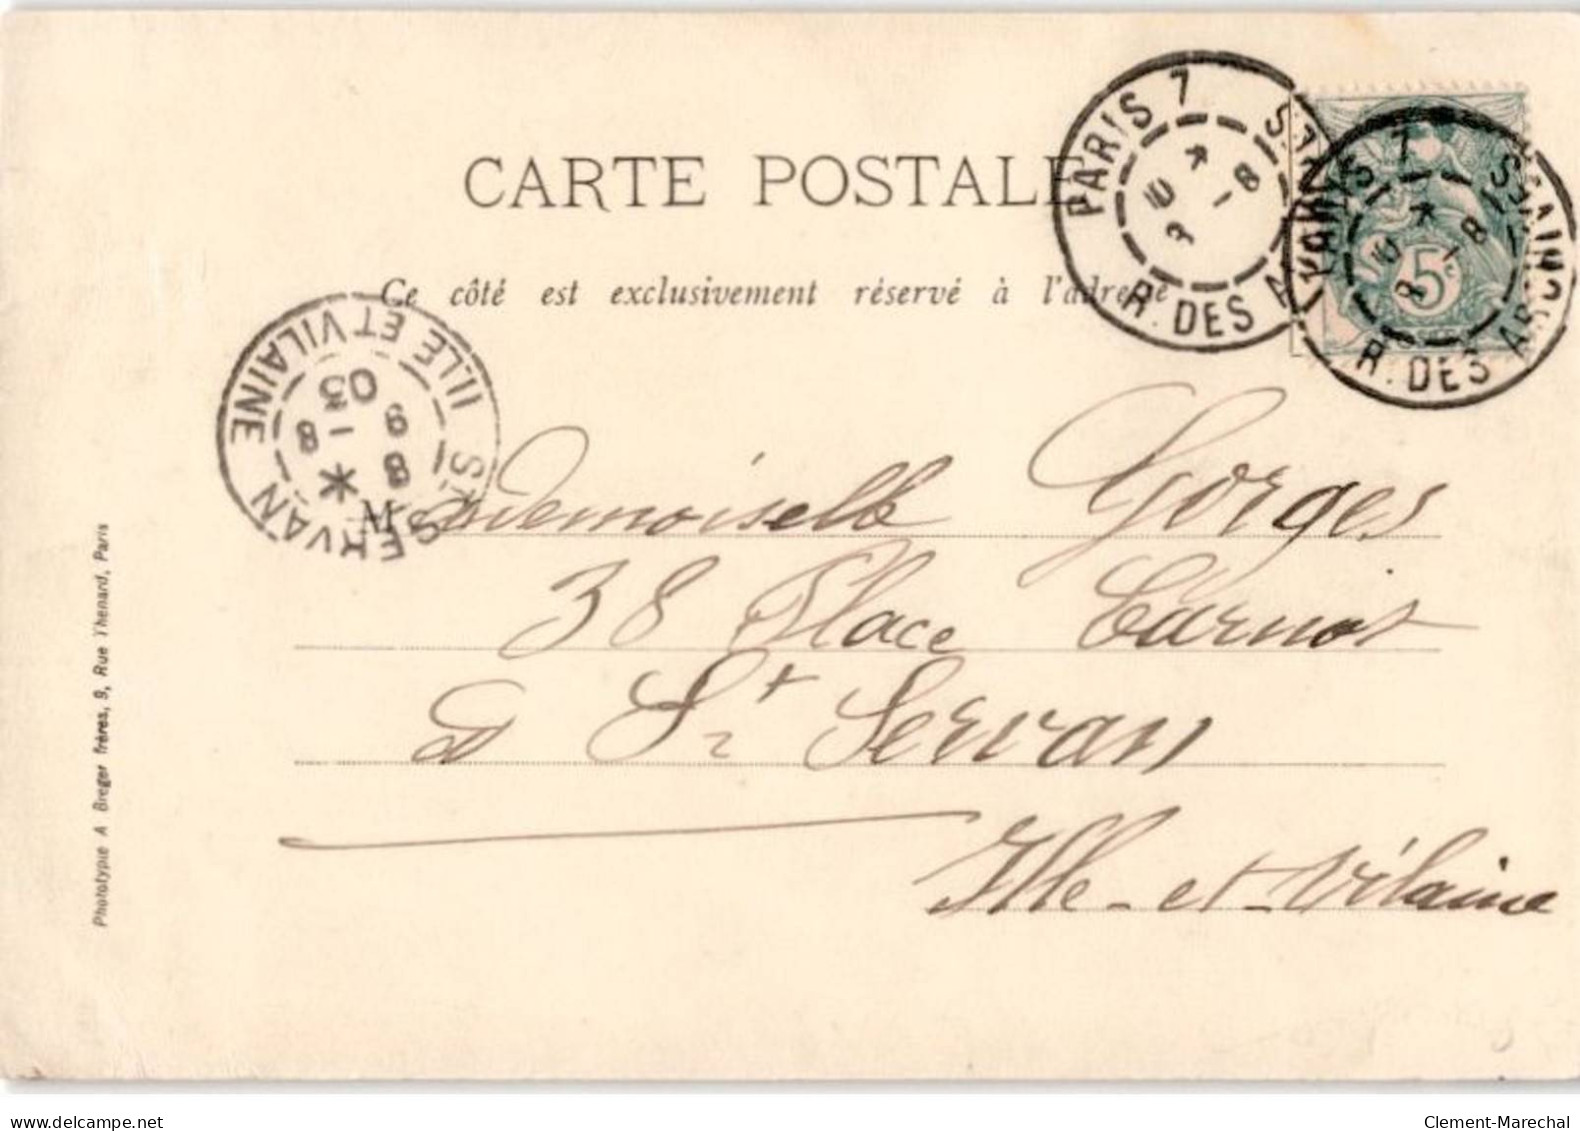 CARTE POSTALE
Ce côté est exclusivement réservé à l'adresse
PARIS 7
R. DES
PARIS 7
R. DES
5c
ILLE ET VILAINE
St SERVAN
8 *
9 - 8
03
Mademoiselle Gorges
38 Place Carnot
à St Servan
Ille-et-Vilaine
Phototypie A Breger frères, 9, Rue Thenard, Paris
delcampe.net
Clement-Marechal